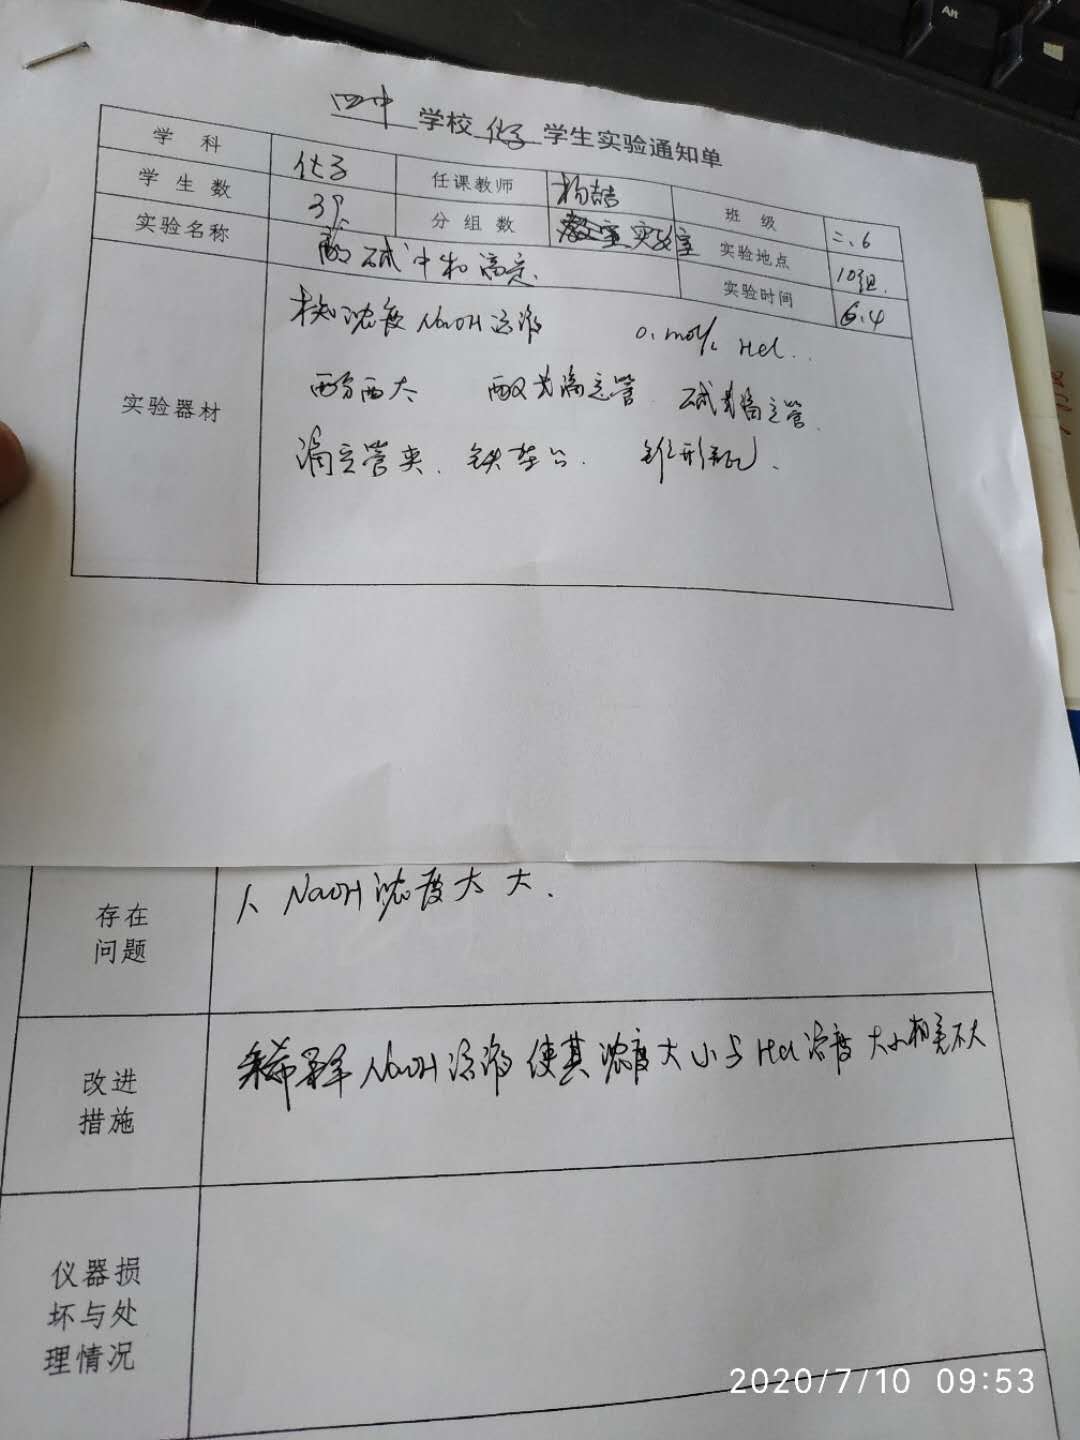 四中 学校 化学 学生实验通知单
学科 化学 任课教师 杨喆 班级 二.6
学生数 38 分组数 实验室 实验地点 10组.
实验名称 酸碱中和滴定. 实验时间 6.4
实验器材
未知浓度 NaOH溶液 0.1mol/L HCl..
酚酞 酸式滴定管 碱式滴定管.
滴定管夹. 铁架台. 锥形瓶.
存在问题
1、NaOH浓度太大.
改进措施
稀释 NaOH溶液 使其浓度大小与HCl浓度大小相差不大
仪器损坏与处理情况
Alt
2020/7/10 09:53